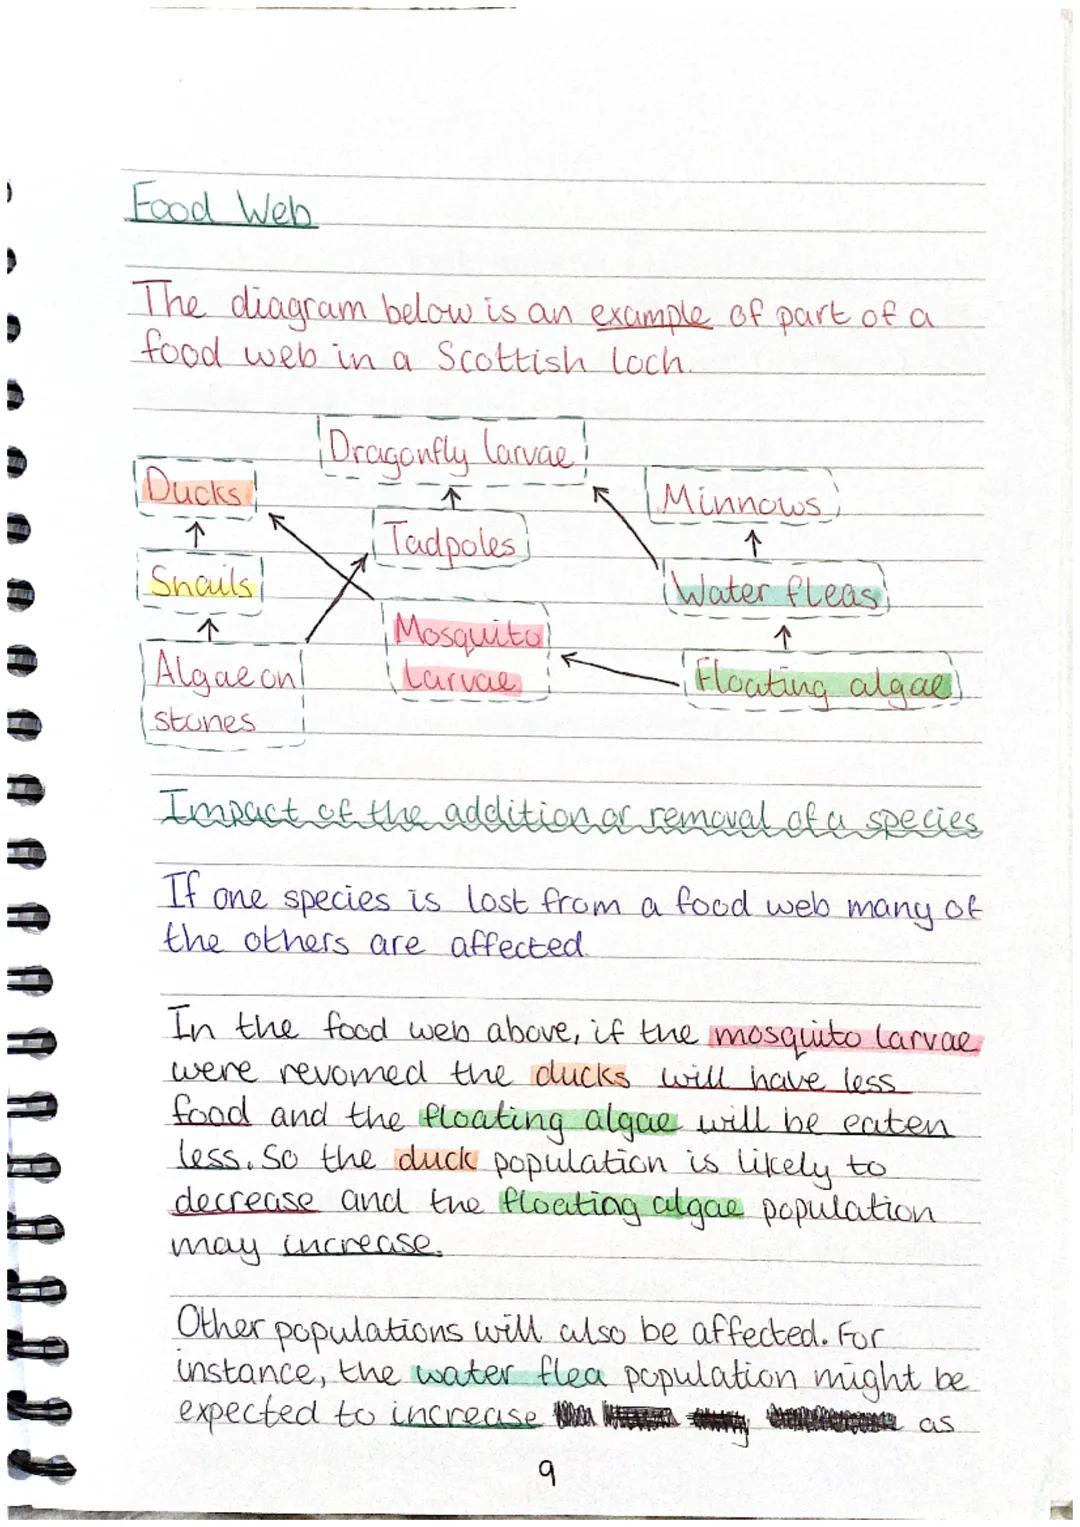 Food Web
The diagram below is an example of part of a
food web in a Scottish loch.
Dragonfly larvae
Ducks
Minnows
Tadpoles
Snails
Water fleas
Mosquito
larvae
Algae on
stones
Floating algae
Impact of the addition or removal of a species
If one species is lost from a food web many of
the others are affected.
In the food web above, if the mosquito larvae
were revomed the ducks will have less
food and the floating algae will be eaten
less. So the duck population is likely to
decrease and the floating algae population
may increase.
Other populations will also be affected. For
instance, the water flea population might be
expected to increase as
9